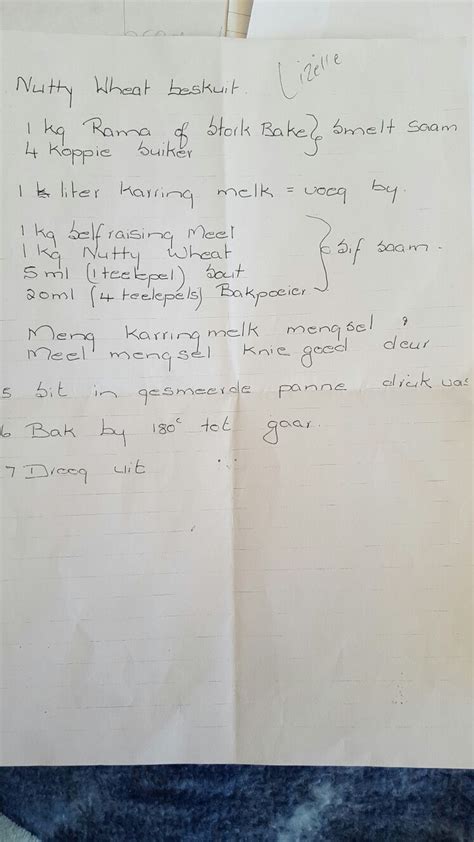 Nutty Wheat beskuit.
Lizelle
1 kg Rama of Stork Bake } smelt saam
4 koppie suiker
1 liter karring melk = voeg by.
1 kg selfraising Meel
1 kg Nutty Wheat
5 ml (1 teelepel) sout } sif saam.
20ml (4 teelepels) Bakpoeier
Meng karringmelk mengsel &
Meel mengsel knie goed deur
5 sit in gesmeerde panne druk vas
6 Bak by 180°c tot gaar.
7 Droog uit